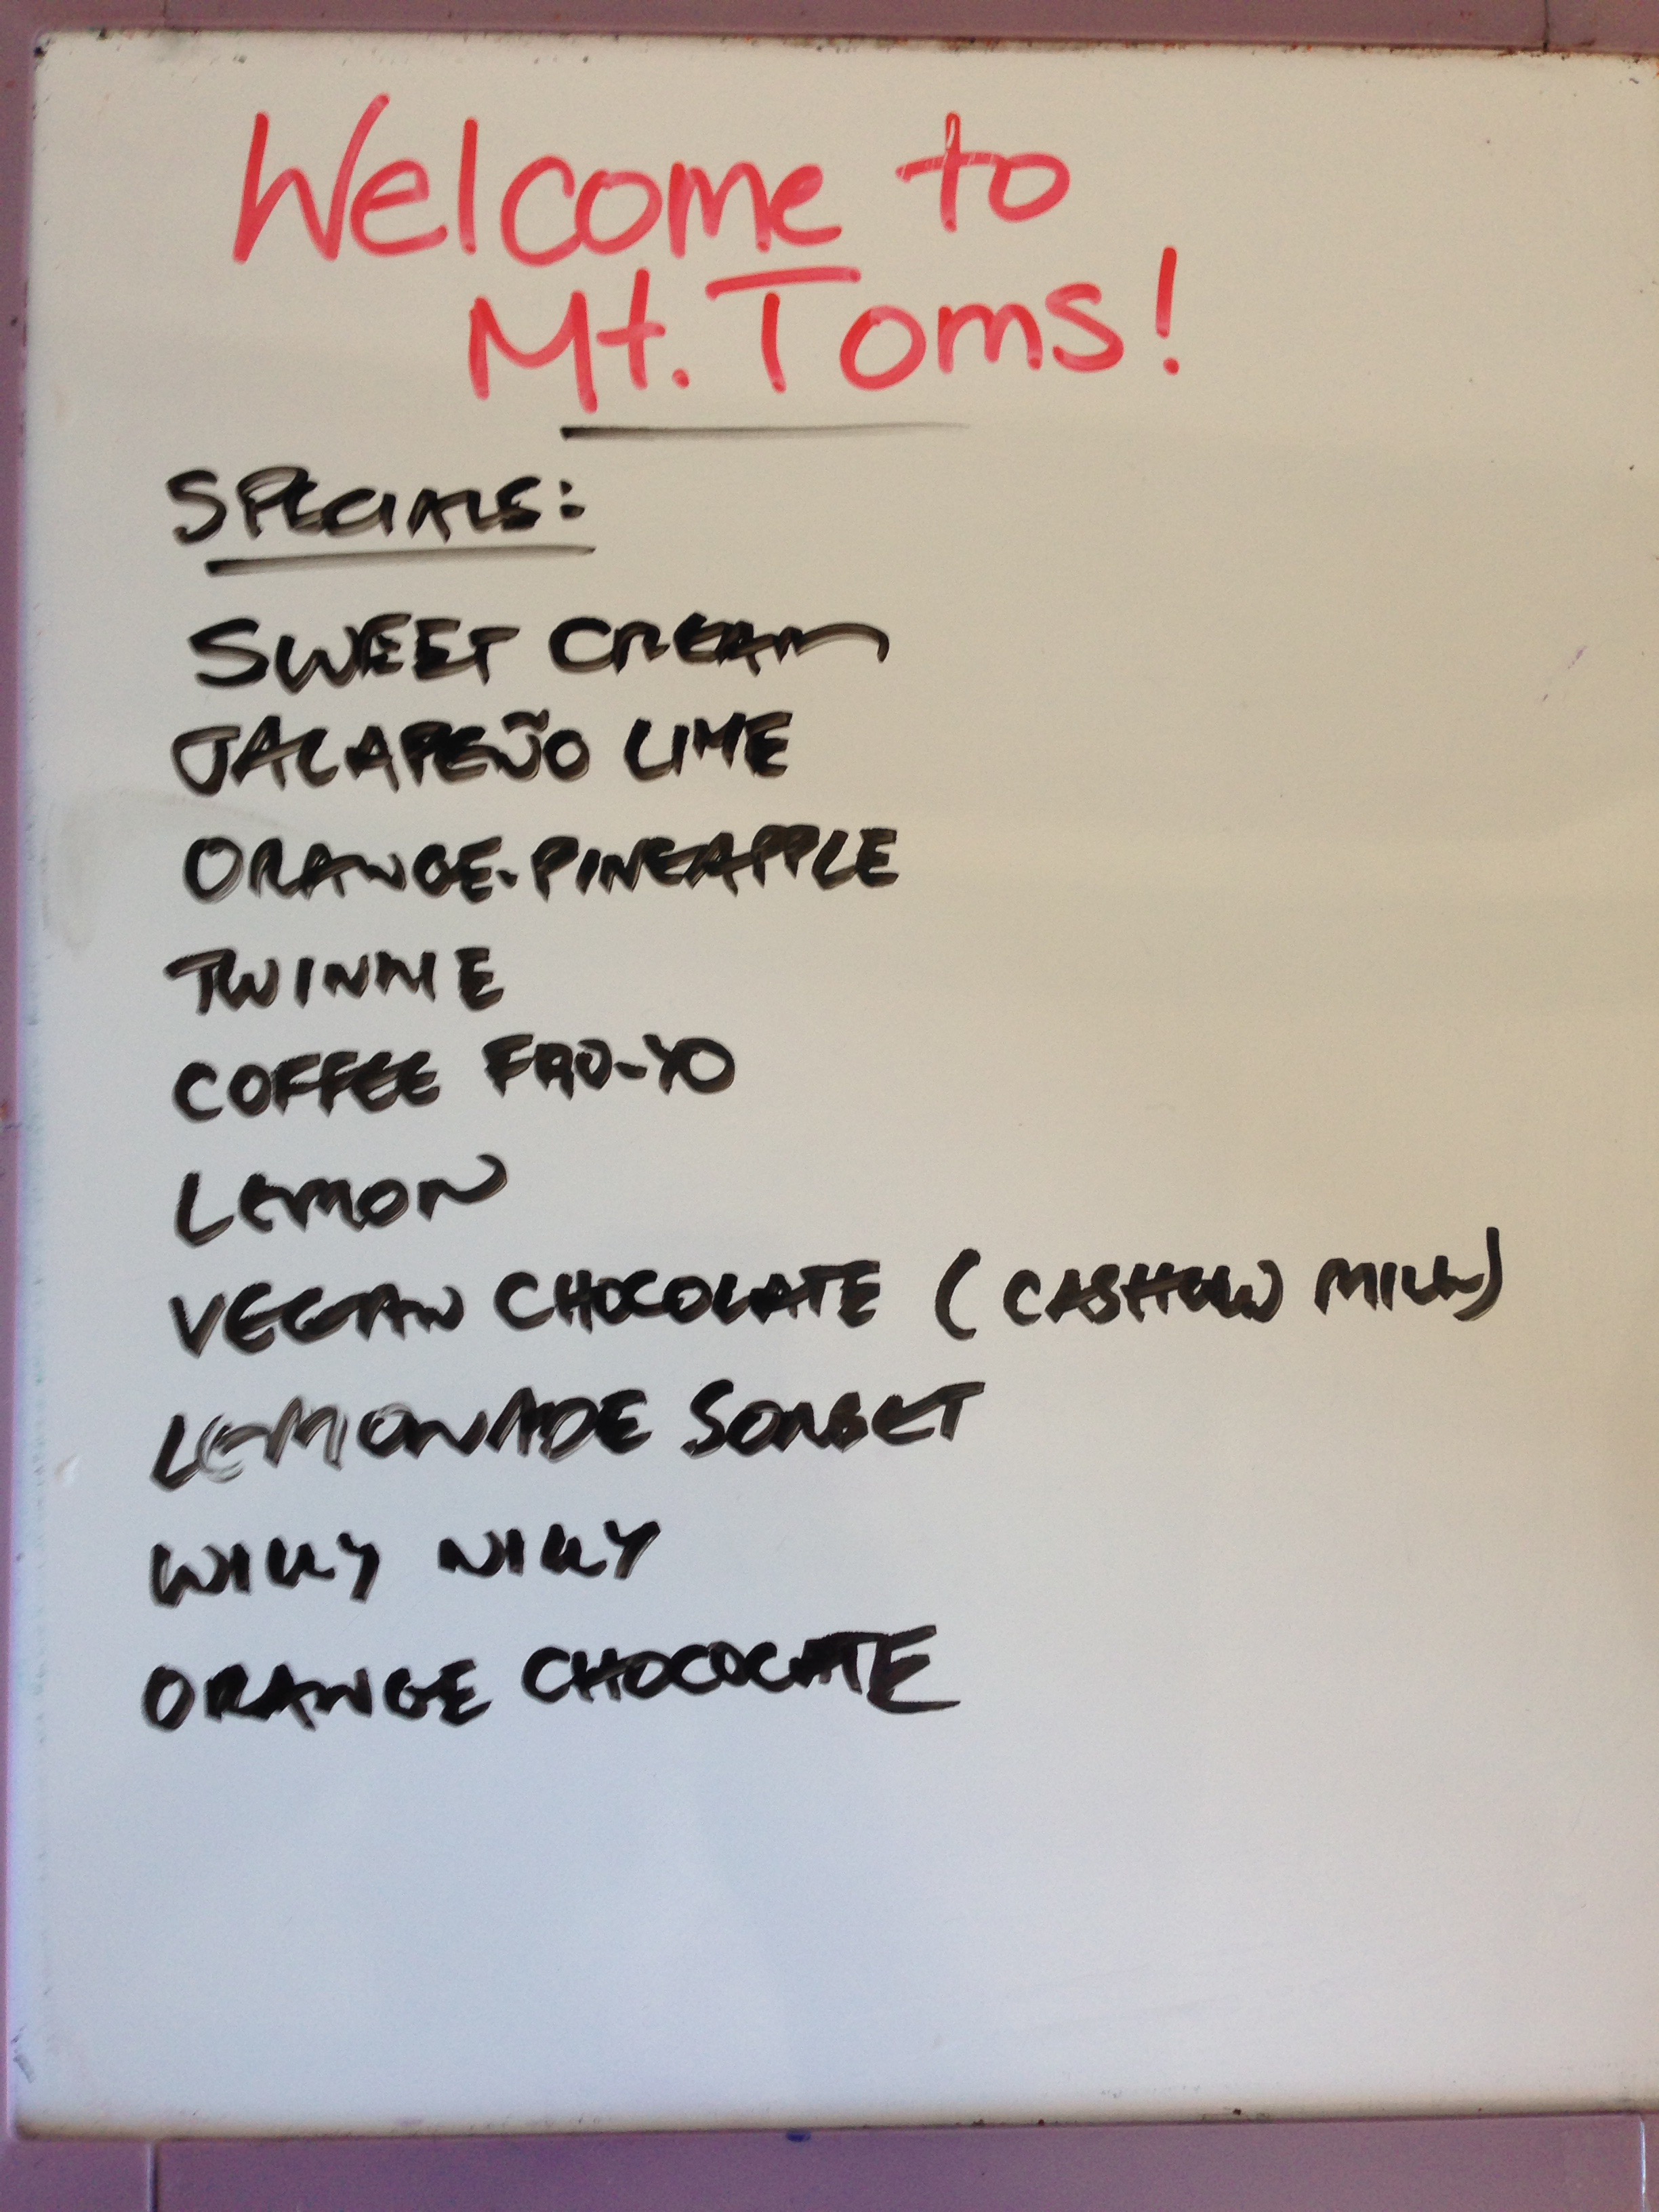 Welcome to
Mt. Toms!
SPECIALS:
SWEET CREAM
JALAPEÑO LIME
ORANGE-PINEAPPLE
TWINNIE
COFFEE FRO-YO
LEMON
VEGAN CHOCOLATE (CASHEW MILK)
LEMONADE SORBET
WILLY NILLY
ORANGE CHOCOLATE